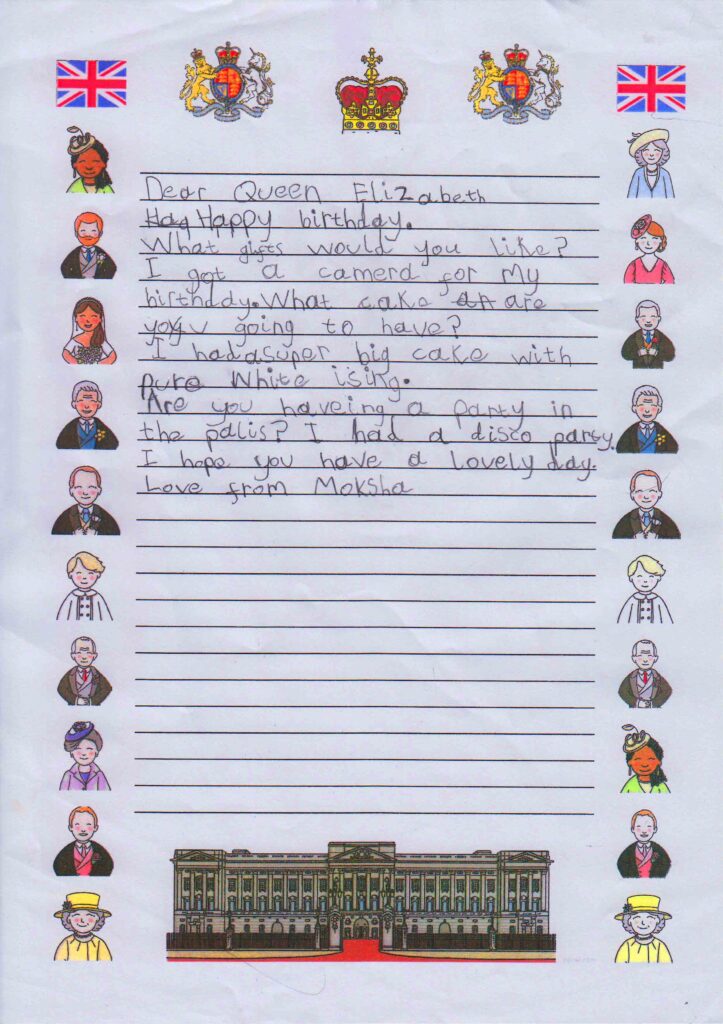 Dear Queen Elizabeth
Hag Happy birthday.
What gifts would you like?
I got a camera for my
birthday. What cake an are
you going to have?
I had a super big cake with
pure White ising.
Are you haveing a party in
the palis? I had a disco party.
I hope you have a lovely day.
Love from Moksha